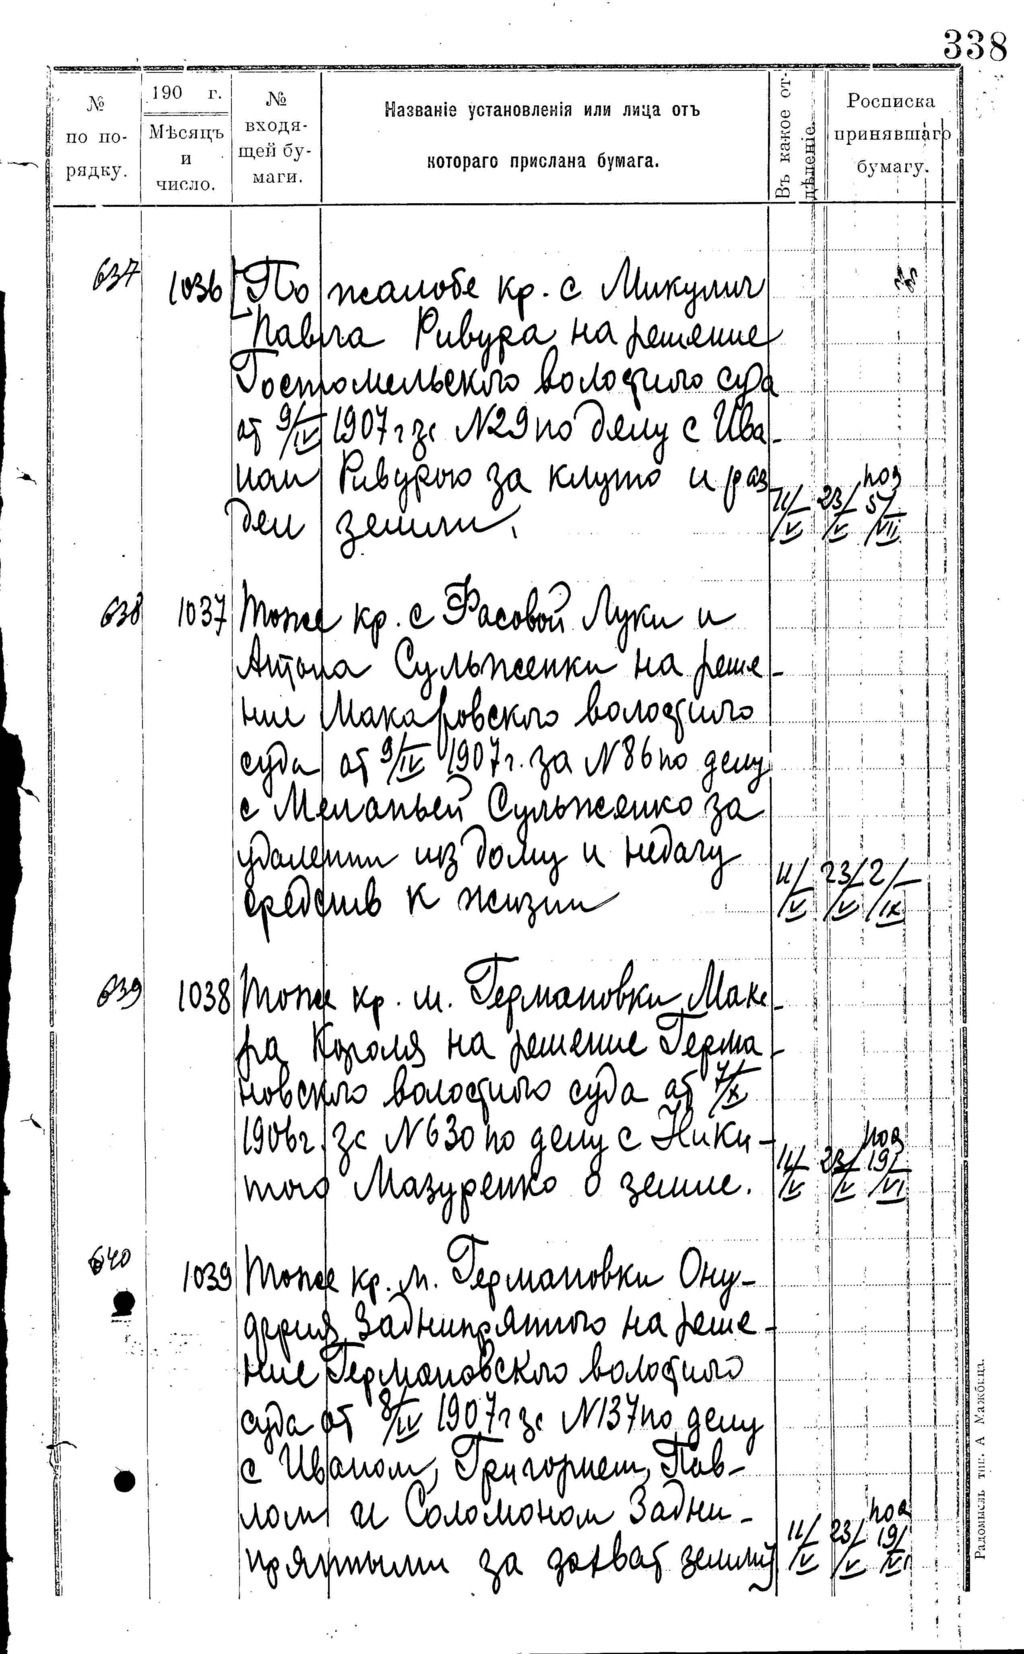 338
№ по по-рядку.
190 г.
Мѣсяцъ и число.
№ входя-щей бу-маги.
Названіе установленія или лица отъ
котораго прислана бумага.
Въ какое от-дѣленіе.
Росписка принявшаго бумагу.
637 1036 По жалобе кр. с Микулич
Павла Ривура на решение
Гостомельскго волостило суда
от 9/IV 1907 г зс N29 по делу с Ива-
ном Ривурою за клуню и раз
дел земли.
11/V 23/V 5/VII
638 1037 Тоже кр. с Фасовой Луки и
Антона Сульженки на реше-
ние Макаровскго волостило
суда от 9/IV 1907 г. за N86 по делу
с Меланьей Сульженко за
удалении из дому и недачу
средств к жизни
11/V 23/V 2/IX
639 1038 Тоже кр. м. Германовки Мака-
ра Короля на решение Герма-
новскго волостило суда от 7/X
1906 г. зс N630 по делу с Ники-
тою Мазуренко о земле.
11/V 23/V 19/VI
640 1039 Тоже кр. м. Германовки Ону-
фрия Заднипряного на реше-
ние Германовскго волостило
суда от 8/IV 1907 г зс N137 по делу
с Иваном, Григорием, Пав-
лом и Соломоном Задни-
пряными за захват земли
11/V 23/V 19/VI
Радомысль тип. А Мажбица.